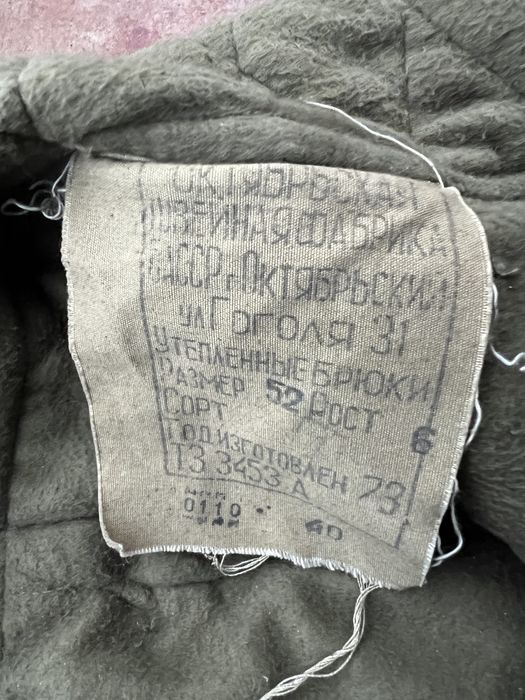 ОКТЯБРЬСКАЯ
ШВЕЙНАЯ ФАБРИКА
БАССР г. ОКТЯБРЬСКИЙ
УЛ ГОГОЛЯ 31
УТЕПЛЕННЫЕ БРЮКИ
РАЗМЕР 52 РОСТ 6
СОРТ
ГОД ИЗГОТОВЛЕН 73
ТЗ 3453 А
0110 40